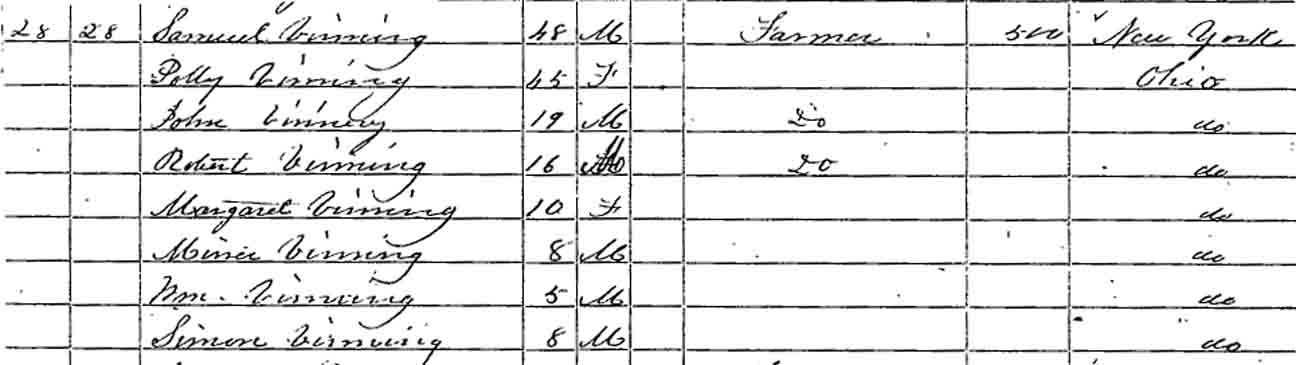 28 28 Samuel Vinning 48 M Farmer 500 New York
Polly Vinning 45 F Ohio
John Vinning 19 M Do do
Robert Vinning 16 M Do do
Margaret Vinning 10 F do
Vinning 8 M do
Wm. Vinning 5 M do
Simon Vinning 8 M do